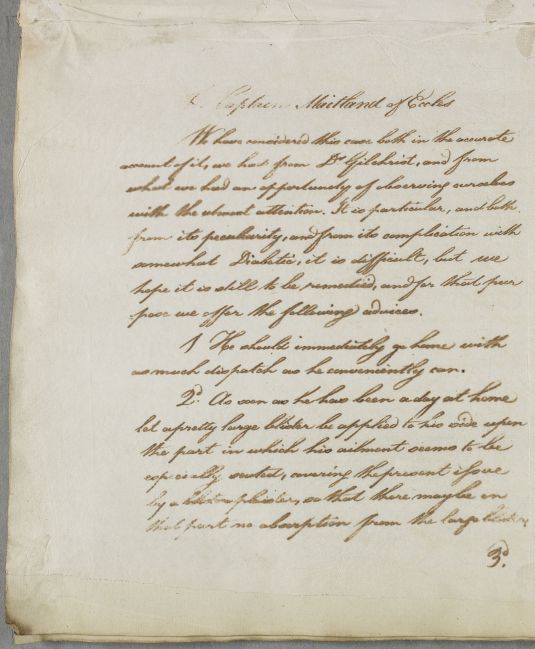 Captain Maitland of Eccles
We have considered this case both in the accurate
account of it, we had from Dr Gilchrist, and from
what we had an opportunity of observing ourselves
with the utmost attention. It is particular, and both
from its peculiarity, and from its complication with
somewhat Diabetic, it is difficult, but we
hope it is still to be remedied, and for that pur
pose we offer the following advices.
1 He should immediately go home with
as much dispatch as he conveniently can.
2d. As soon as he has been a day at home
let a pretty large blister be applied to his side upon
the part in which his ailment seems to be
especially seated, covering the present issue
by a plaister, so that there may be in
that part no absorption from the large
3d.